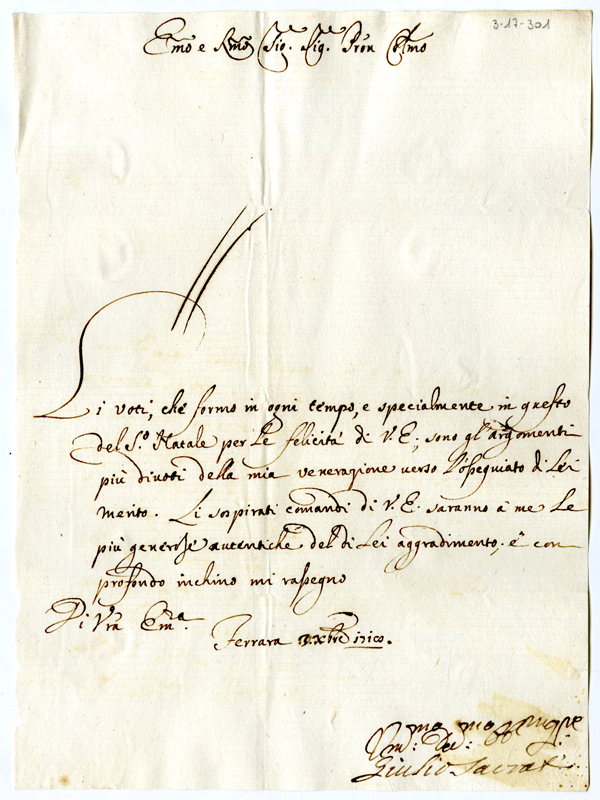 3-17-301
Emo e Rmo Sig. Sig. Pron Colmo
Li voti, che formo in ogni tempo, e specialmente in questo
del S.º Natale per le felicità di V.E; sono gl'argomenti
più divoti della mia venerazione verso l'ossequiato di Lei
merito. Li sospirati comandi di V.E. saranno à me le
più generose autentiche del di Lei aggradimento; e con
profondo inchino mi rassegno
Di Vra Ema.
Ferrara Xbre
Giulio Sacrat